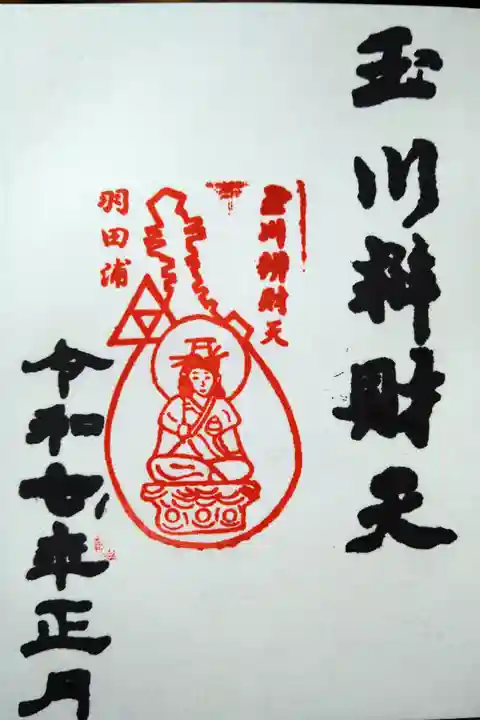 玉川辨財天
川辨財天
羽田浦
令和七年正月